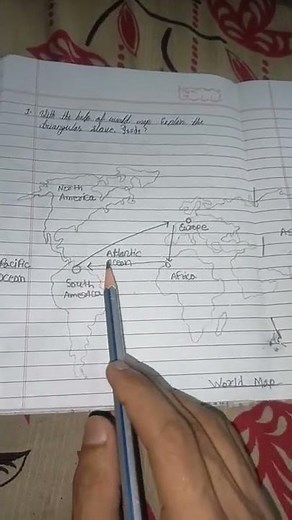 With the help of world map Explain the
triangular slave trade?
North
America
Europe
Atlantic
Ocean
Pacific
Ocean
Africa
South
America
AS
World Map